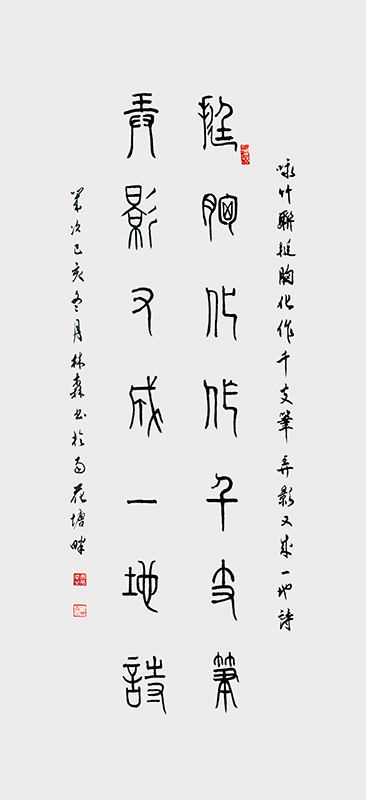 咏竹聯挺胸化作千支筆弄影又成一地詩
挺胸化作千支筆
弄影又成一地詩
歲次己亥冬月林森书於雨花塘畔